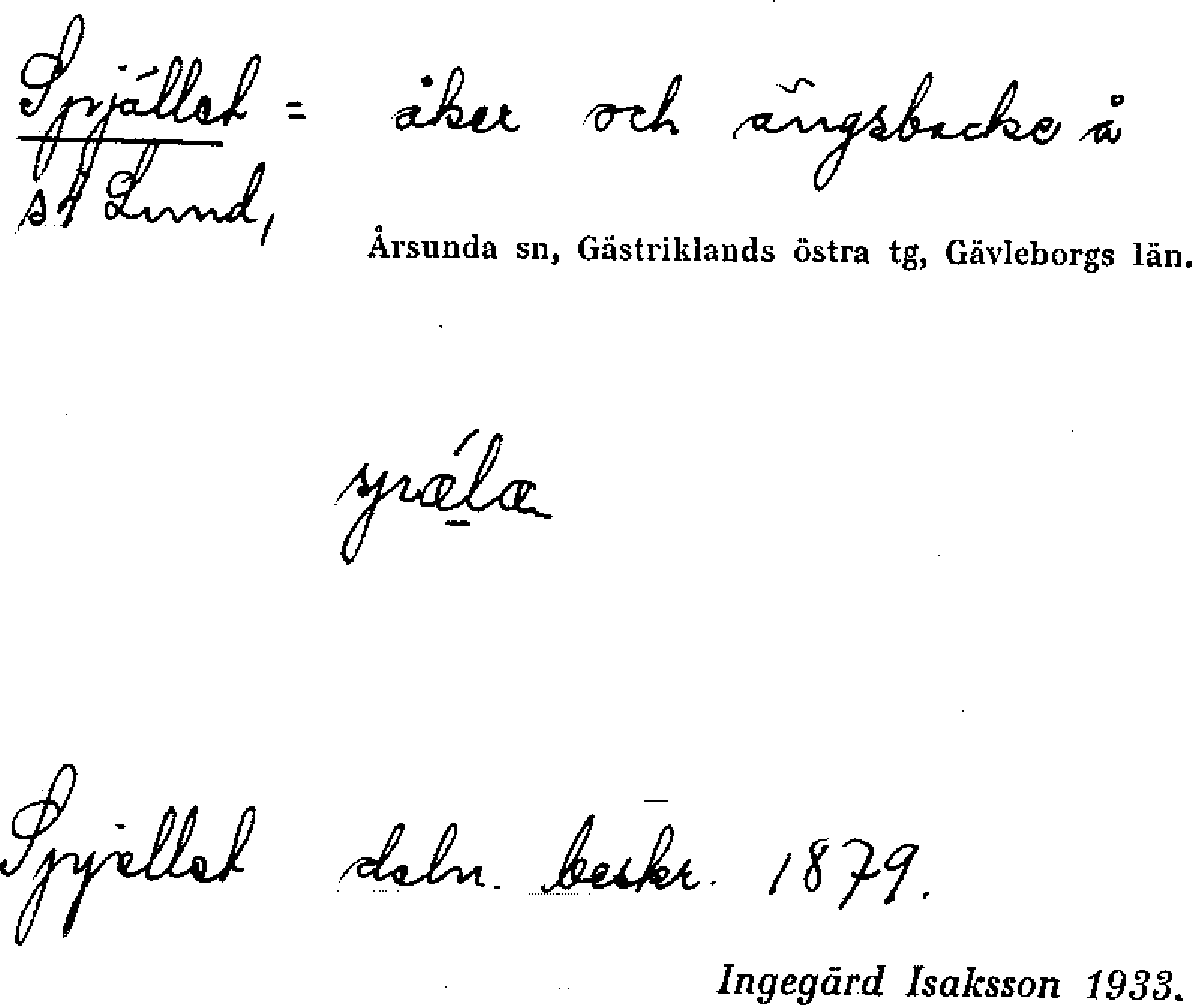 Spjället = åker och ängsbacke å
st Lund,
Årsunda sn, Gästriklands östra tg, Gävleborgs län.
spǽ̠la
Spjellet deln. beskr. 1879.
Ingegärd Isaksson 1933.